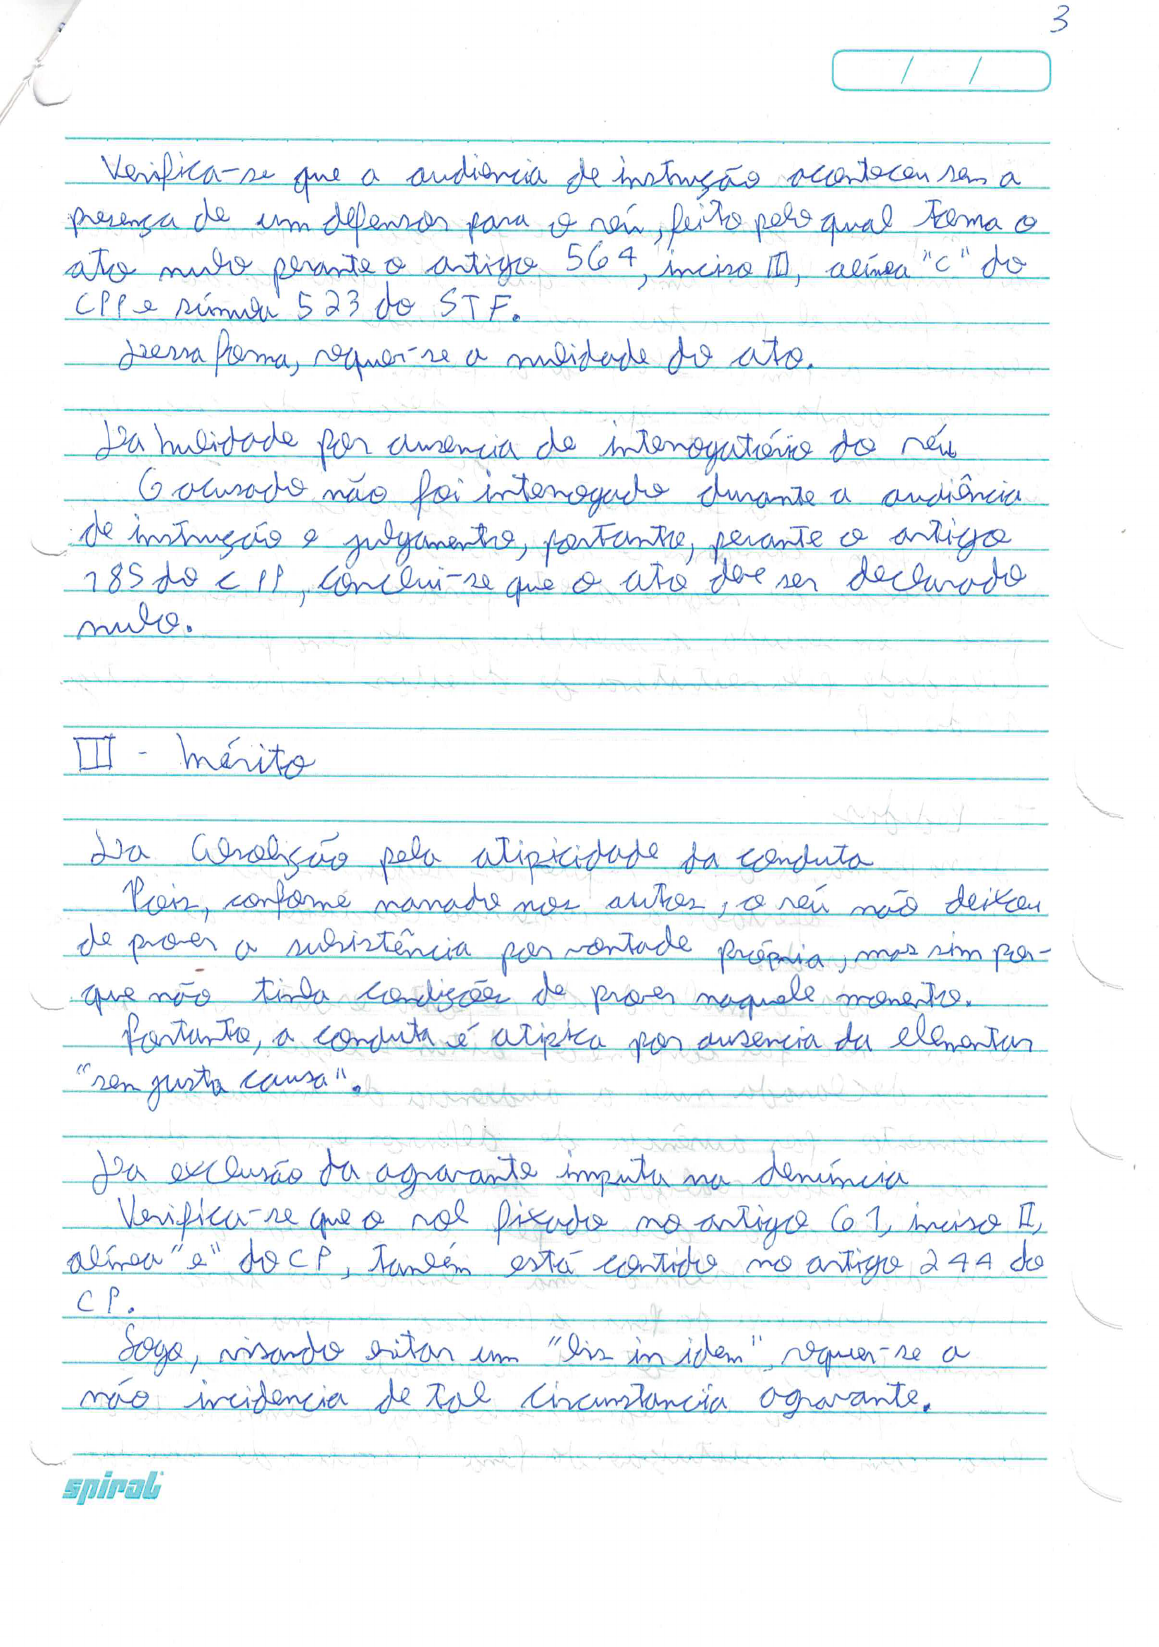 3
/ /
Verifica-se que a audiencia de instrução aconteceu sem a
presença de um defensor para o réu, feito pelo qual torna o
ato nulo perante o artigo 564, inciso III, alínea "c" do
CPP e súmula 523 do STF.
Dessa forma, requer-se a nulidade do ato.
Da nulidade por ausencia de interrogatório do réu
O acusado não foi interrogado durante a audiência
de instrução e julgamento, portanto, perante o artigo
185 do CPP, conclui-se que o ato deve ser declarado
nulo.
III - Mérito
Da Absolvição pela atipicidade da conduta
Pois, conforme narrado nos autos, o réu não deixou
de prover a subsistência por vontade própria, mas sim por-
que não tinha condições de prover naquele momento.
Portanto, a conduta é atípica por ausencia da elementar
"sem justa causa".
Da exclusão da agravante imputa na denúncia
Verifica-se que o rol fixado no artigo 61, inciso II,
alínea "e" do CP, também está contido no artigo 244 do
CP.
Logo, visando evitar um "bis in idem", requer-se a
não incidencia de tal circunstancia agravante.
spiral